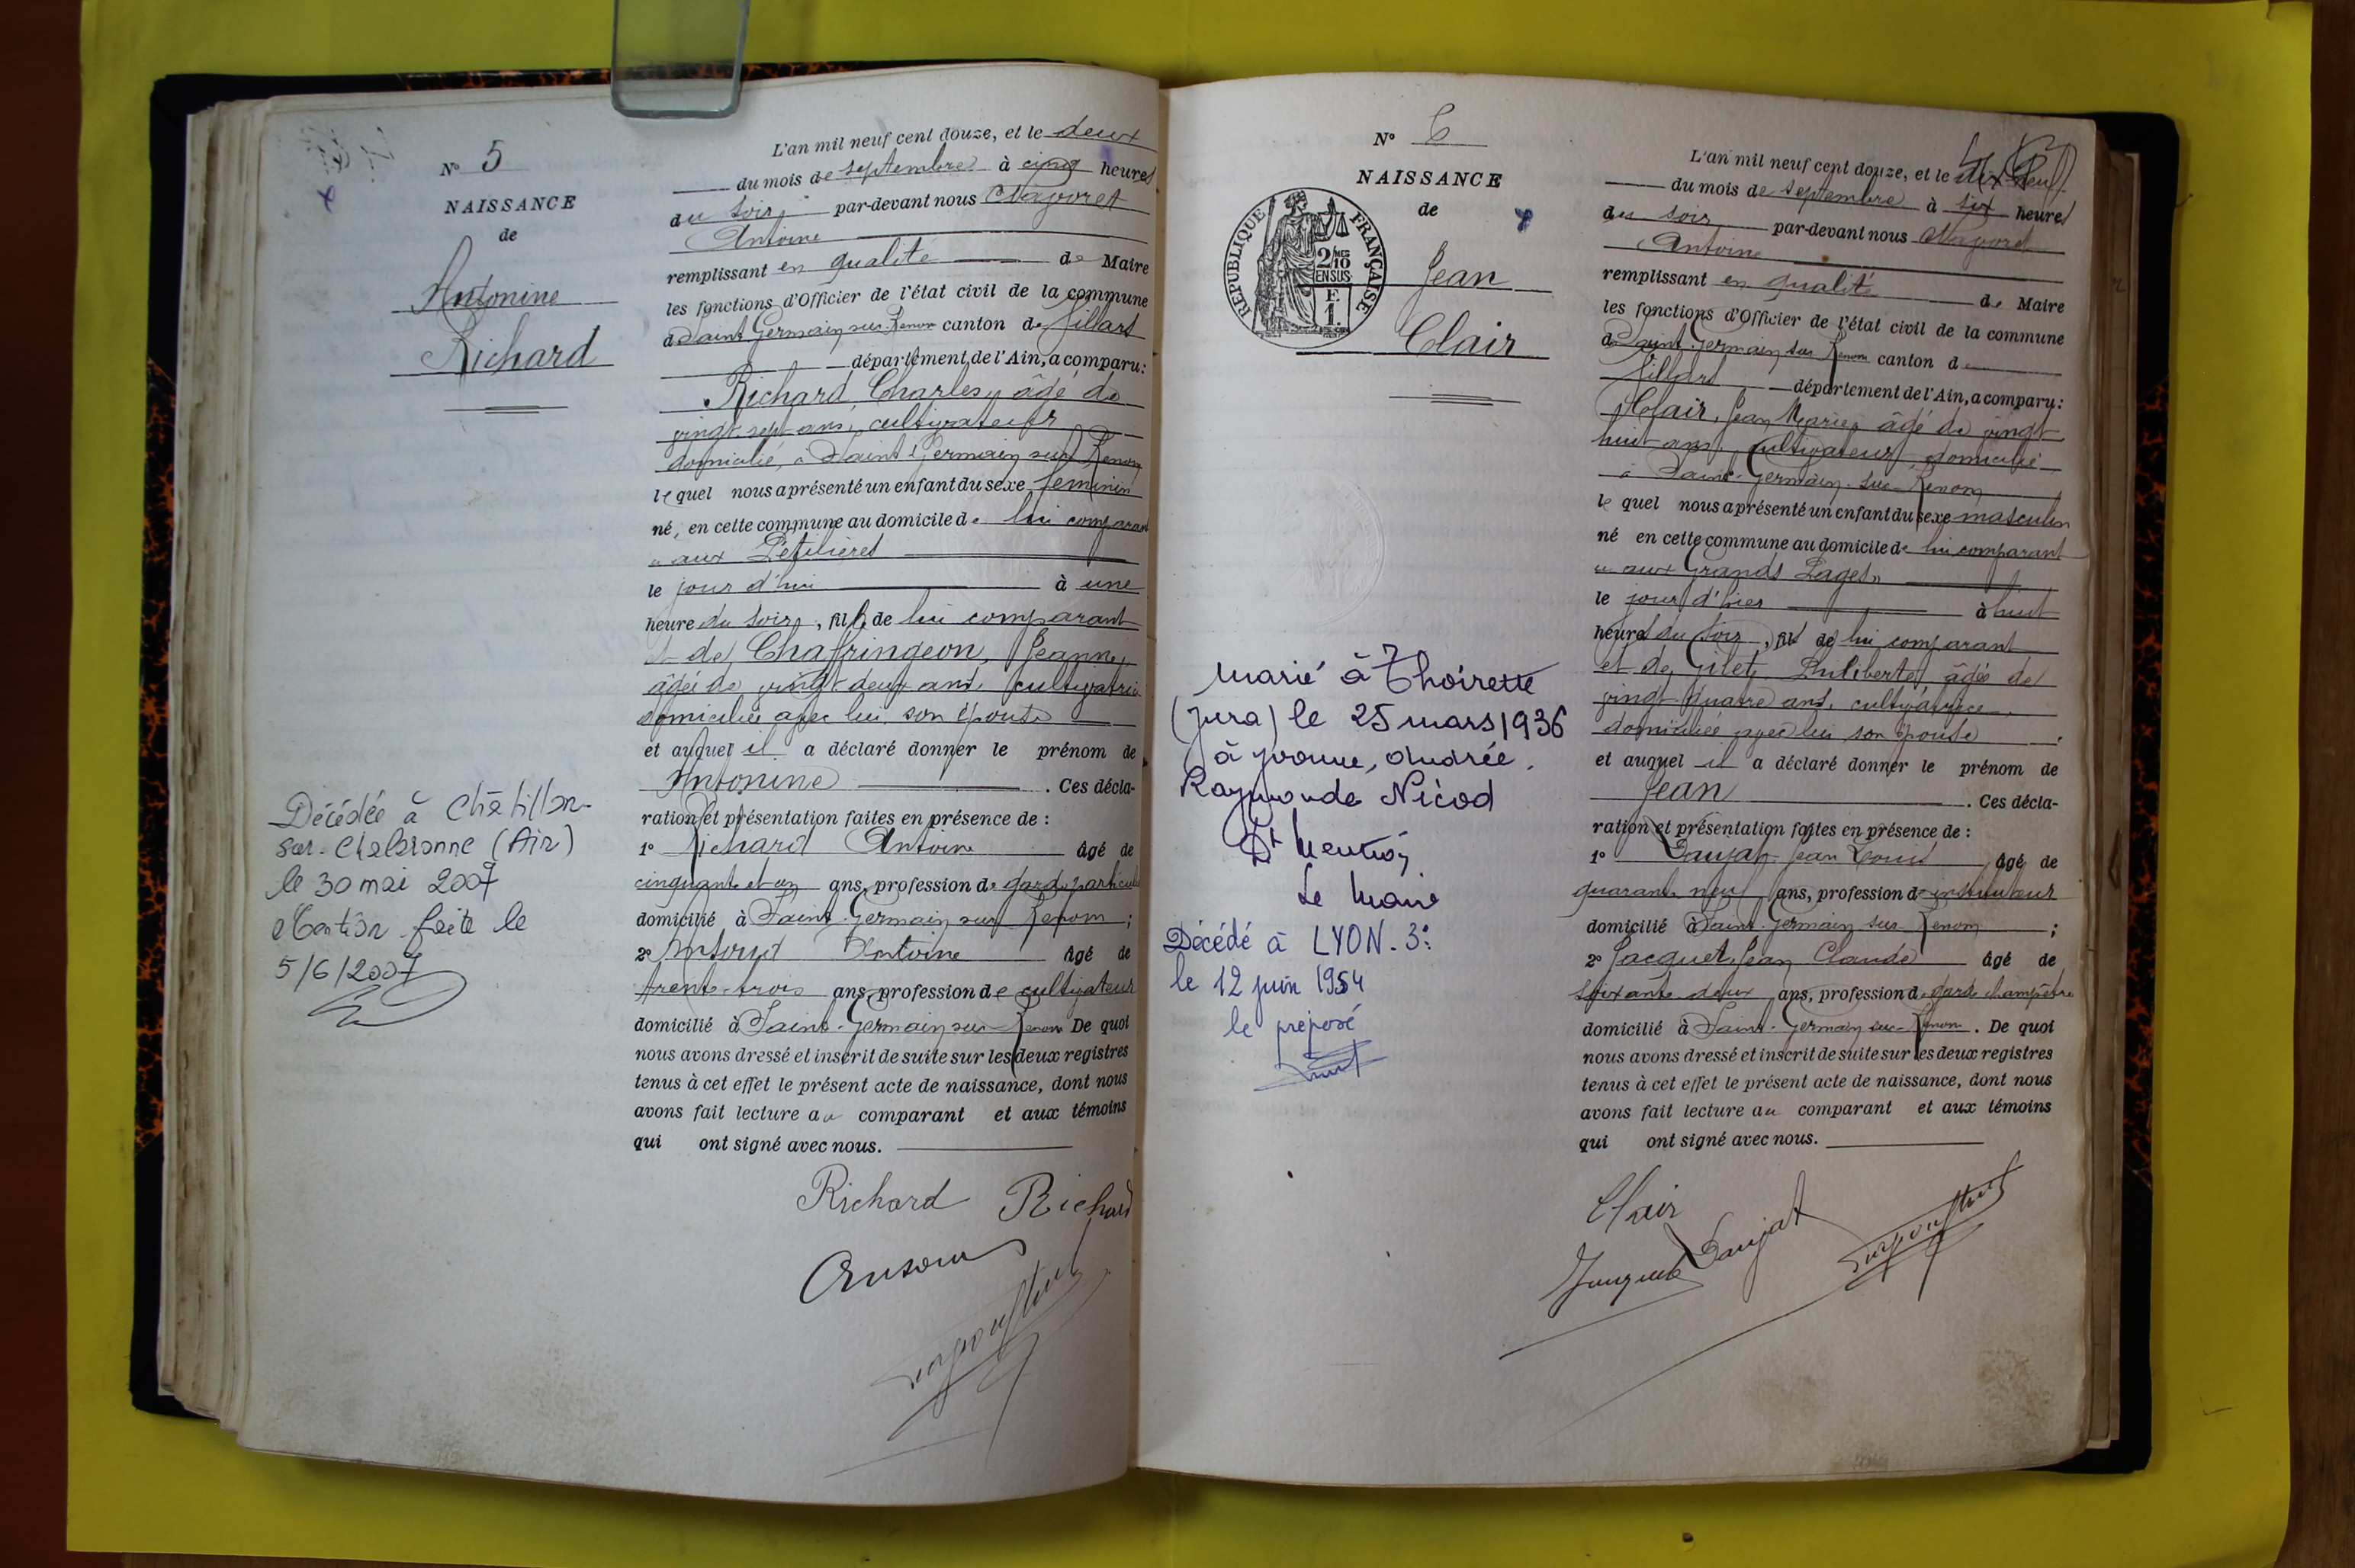 N° 5
NAISSANCE
de
Antonine
Richard
Décédée à Châtillon-
sur-Chalaronne (Ain)
le 30 mai 2007
Mention faite le
5/6/2007
L'an mil neuf cent douze, et le deux
du mois de septembre à cinq heures
du soir, par-devant nous
Antoine
remplissant en qualité de Maire
les fonctions d'Officier de l'état civil de la commune
de Saint Germain sur Renom canton de Villars
département de l'Ain, a comparu:
Richard Charles, âgé de
vingt-sept ans, cultivateur
domicilié, à Saint Germain sur Renom
lequel nous a présenté un enfant du sexe féminin
né, en cette commune au domicile de lui comparant
aux
le jour d'hui à une
heure du soir, fille de lui comparant
et de Chaffringeon, Jeanne,
âgée de vingt deux ans, cultivatrice
domiciliée avec lui, son épouse
et auquel il a déclaré donner le prénom de
Antonine. Ces décla-
ration et présentation faites en présence de :
1° Richard Antoine âgé de
cinquante et un ans, profession de garde particulier
domicilié à Saint-Germain sur Renom ;
2° Antoine âgé de
trente-trois ans, profession de cultivateur
domicilié à Saint-Germain sur Renom De quoi
nous avons dressé et inscrit de suite sur les deux registres
tenus à cet effet le présent acte de naissance, dont nous
avons fait lecture au comparant et aux témoins
qui ont signé avec nous.
Richard Richard
N° 6
NAISSANCE
de
REPUBLIQUE FRANÇAISE
2/10
EN SUS
F.
1.
Jean
Clair
marié à Thoirette
(Jura) le 25 mars 1936
à Yvonne, Andrée,
Raymonde Nicod
Dt mention
Le Maire
Décédé à LYON-3e
le 12 juin 1954
le préposé
L'an mil neuf cent douze, et le dix-neuf
du mois de septembre à six heures
du soir par-devant nous
Antoine
remplissant en qualité de Maire
les fonctions d'Officier de l'état civil de la commune
de Saint Germain sur Renom canton de
Villars département de l'Ain, a comparu:
Clair, Jean Marie, âgé de vingt
huit ans, cultivateur, domicilié
à Saint-Germain-sur-Renom
lequel nous a présenté un enfant du sexe masculin
né en cette commune au domicile de lui comparant
aux Grands Pages
le jour d'hier à huit
heures du soir, fils de lui comparant
et de Gilet, Philiberte, âgée de
vingt quatre ans, cultivatrice,
domiciliée avec lui son épouse
et auquel il a déclaré donner le prénom de
Jean. Ces décla-
ration et présentation faites en présence de :
1° Daujat Jean Louis âgé de
quarante neuf ans, profession d'instituteur
domicilié à Saint Germain sur Renom ;
2° Jacquet, Jean Claude âgé de
soixante deux ans, profession de garde champêtre
domicilié à Saint-Germain sur-Renom. De quoi
nous avons dressé et inscrit de suite sur les deux registres
tenus à cet effet le présent acte de naissance, dont nous
avons fait lecture au comparant et aux témoins
qui ont signé avec nous.
Clair
Jacquet Daujat